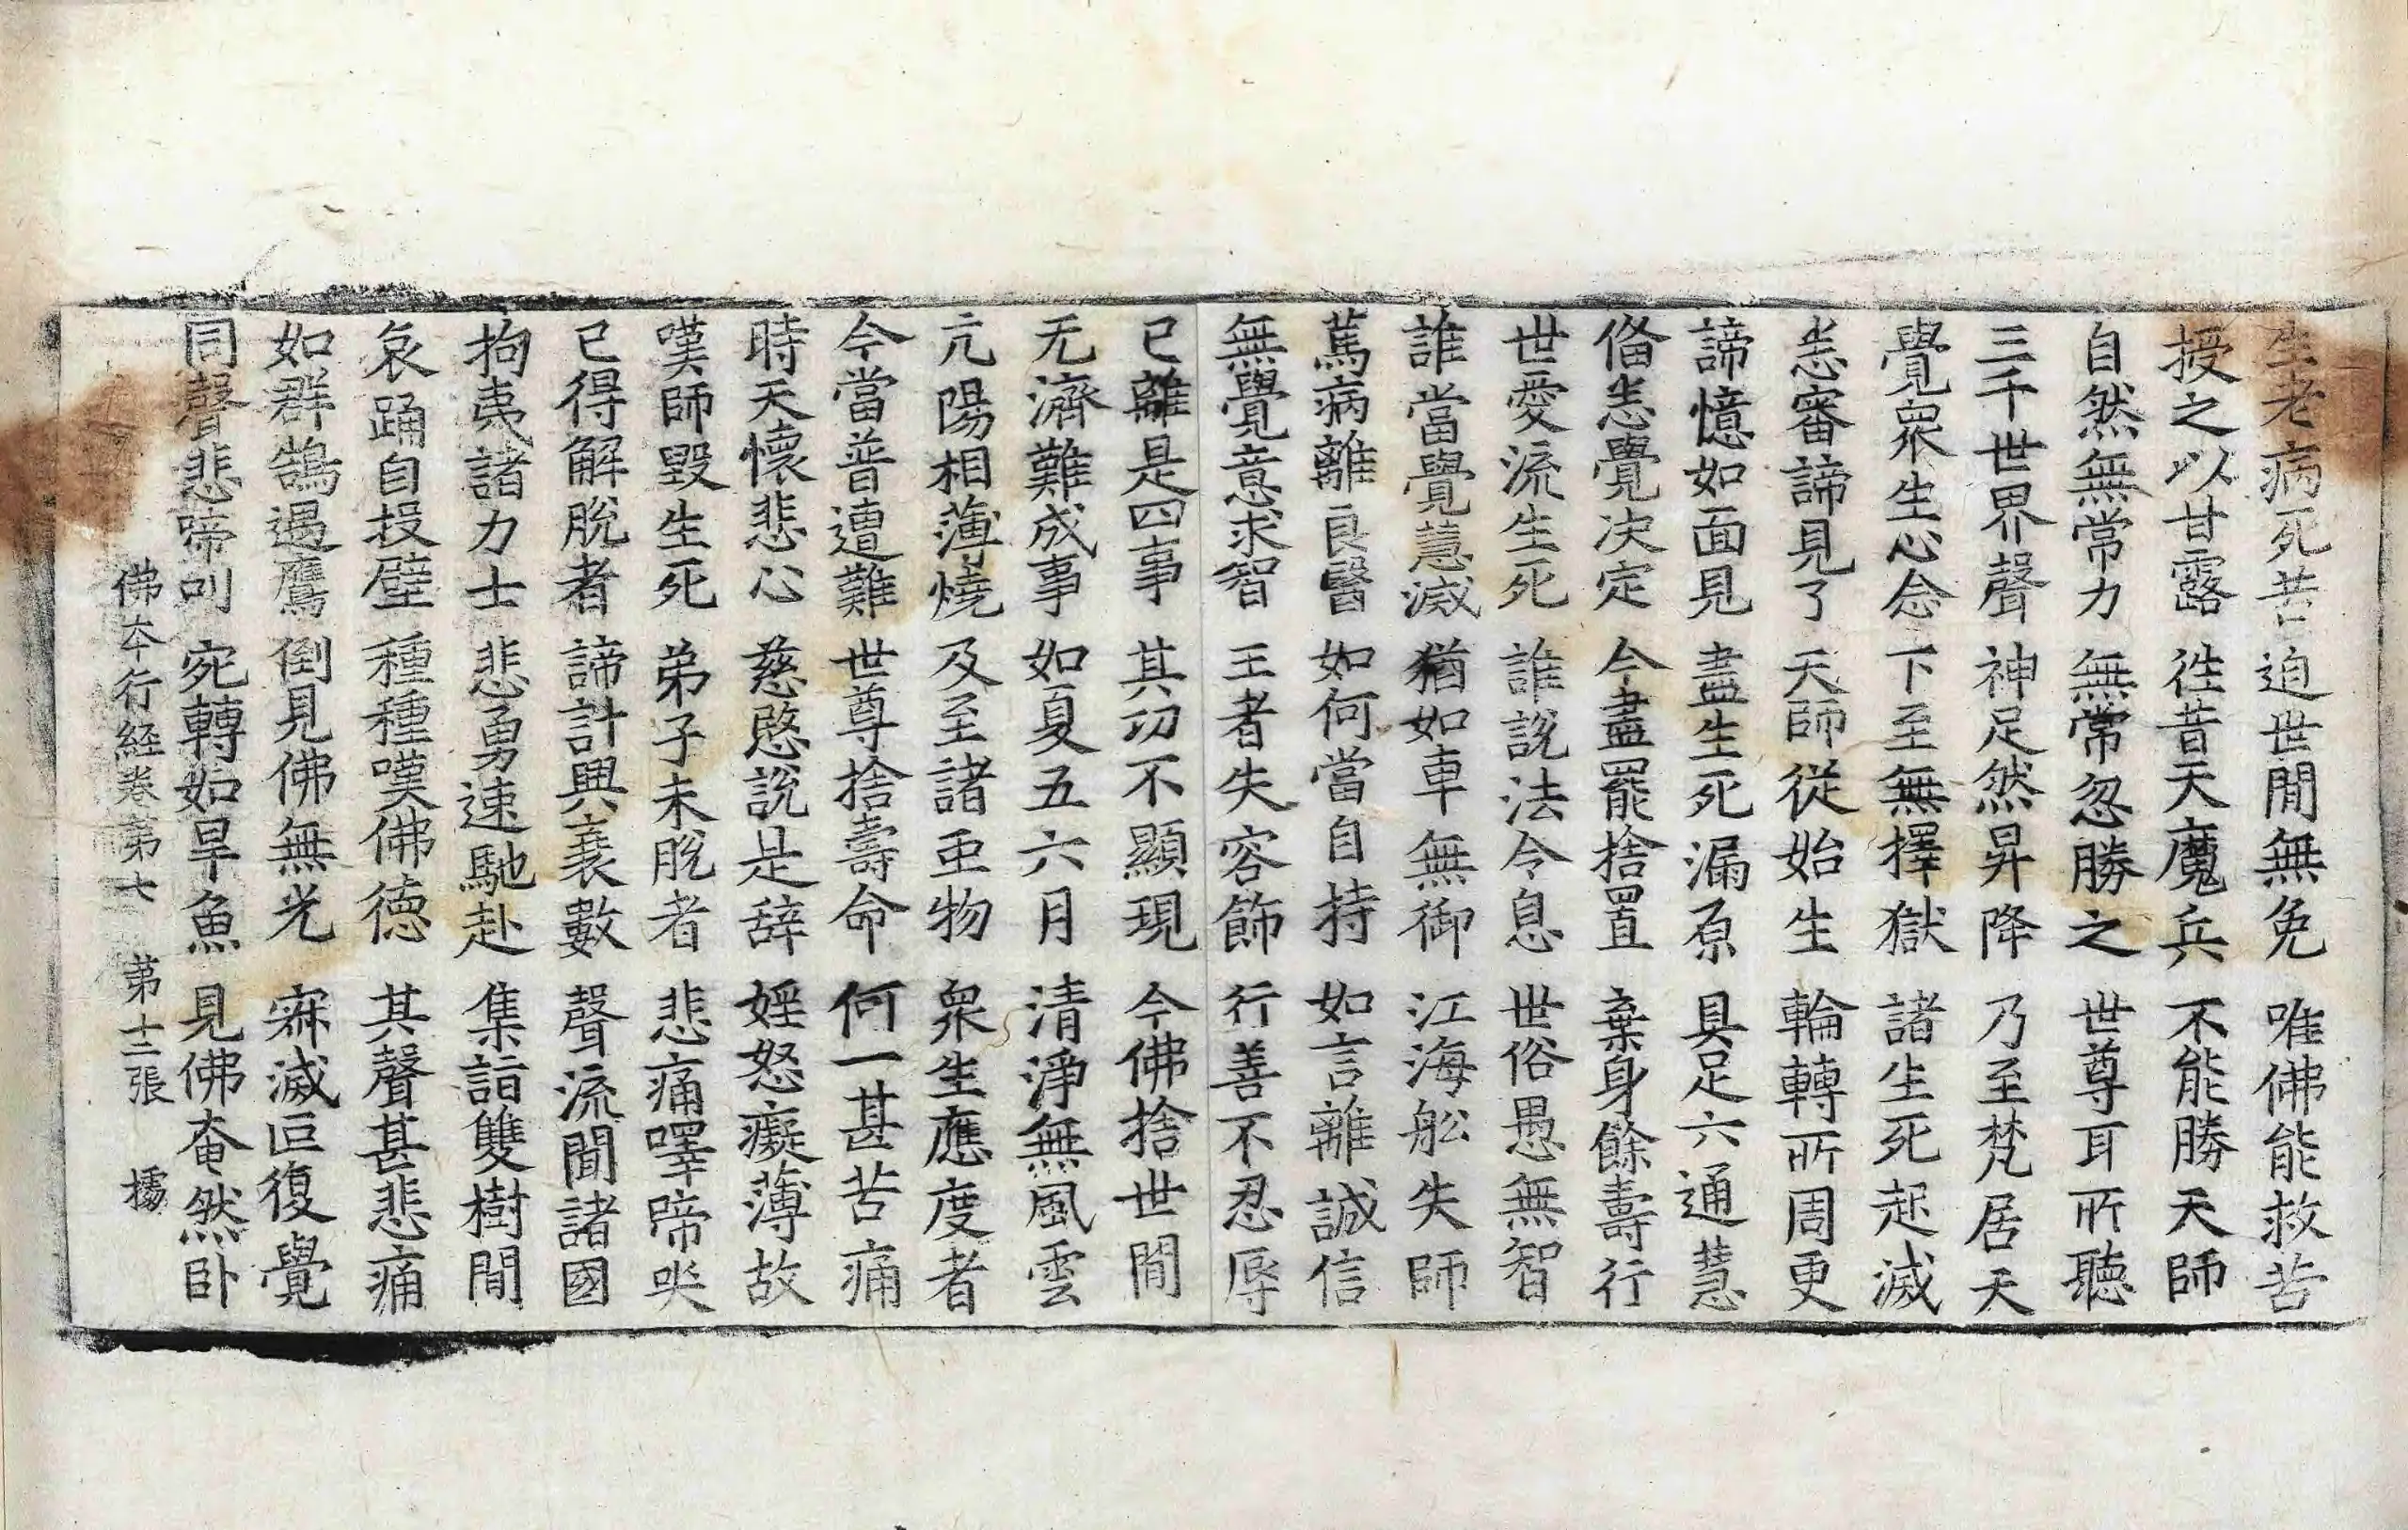 生老病死苦 迫世閒無免 唯佛能救苦
授之以甘露 徃昔天魔兵 不能勝天師
自然無常力 無常忽勝之 世尊耳所聽
三千世界聲 神足然昇降 乃至梵居天
覺衆生心念 下至無擇獄 諸生死起滅
恙審諦見了 天師從始生 輪轉所周更
諦憶如面見 盡生死漏原 具足六通慧
俻恙覺决定 今盡罷捨置 棄身餘壽行
世愛流生死 誰說法令息 世俗愚無智
誰當覺慧滅 猶如車無御 江海舩失師
篤病離良醫 如何當自持 如言離誠信
無覺意求智 王者失容飾 行善不忍辱
已離是四事 其功不顯現 今佛捨世閒
无濟難成事 如夏五六月 清淨無風雲
亢陽相薄燒 及至諸垂物 衆生應度者
今當普遭難 世尊捨壽命 何一甚苦痛
時天懷悲心 慈愍說是辝 婬怒癡薄故
嘆師毀生死 弟子未脫者 悲痛嘷啼哭
已得解脫者 諦計興衰數 聲流聞諸國
拘夷諸力士 悲勇速馳赴 集詣雙樹閒
哀踊自投躃 種種嘆佛德 其聲甚悲痛
如群鵠遇鷹 倒見佛無光 寐滅叵復覺
同聲悲啼叫 宛轉如旱魚 見佛奄然卧
佛夲行経卷第七 第十二張 㩀